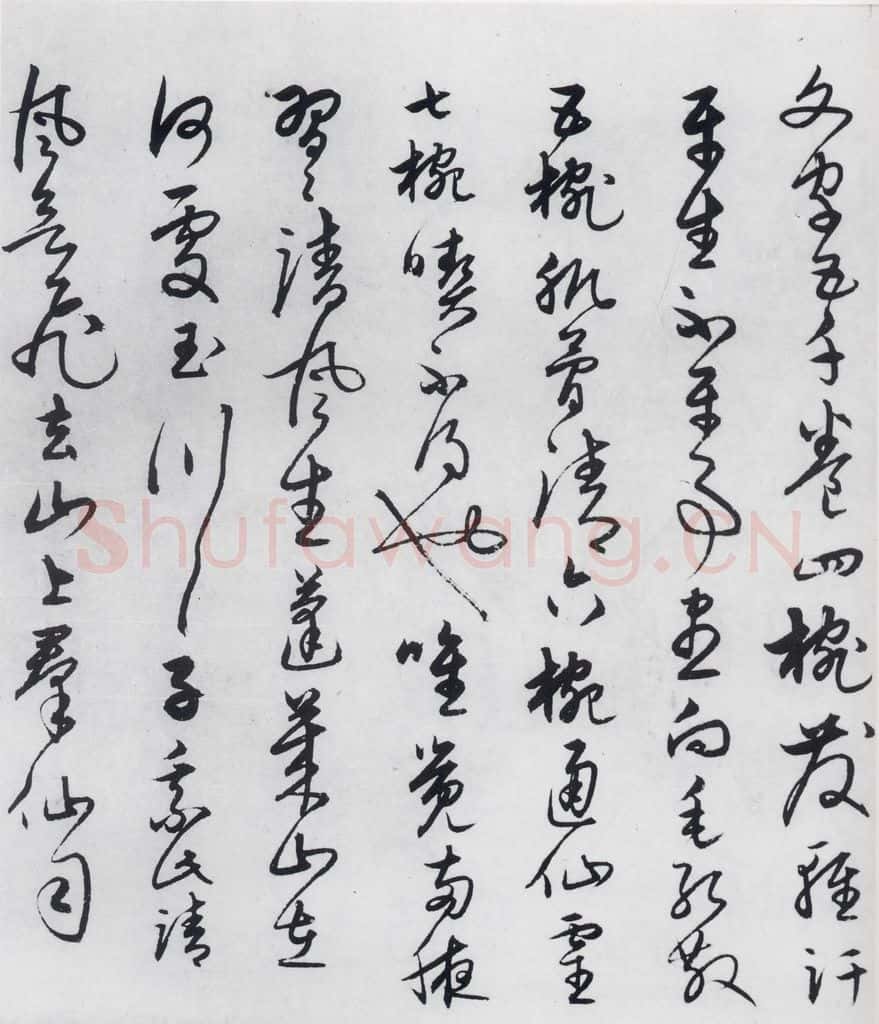 文字五千卷四椀發輕汗
平生不平事盡向毛孔散
五椀肌骨清六椀通仙靈
七椀喫不得也唯覺兩腋
習〻清風生蓬萊山在
何處玉川子乘此清
風欲歸去山上羣仙司
Shufawang.CN